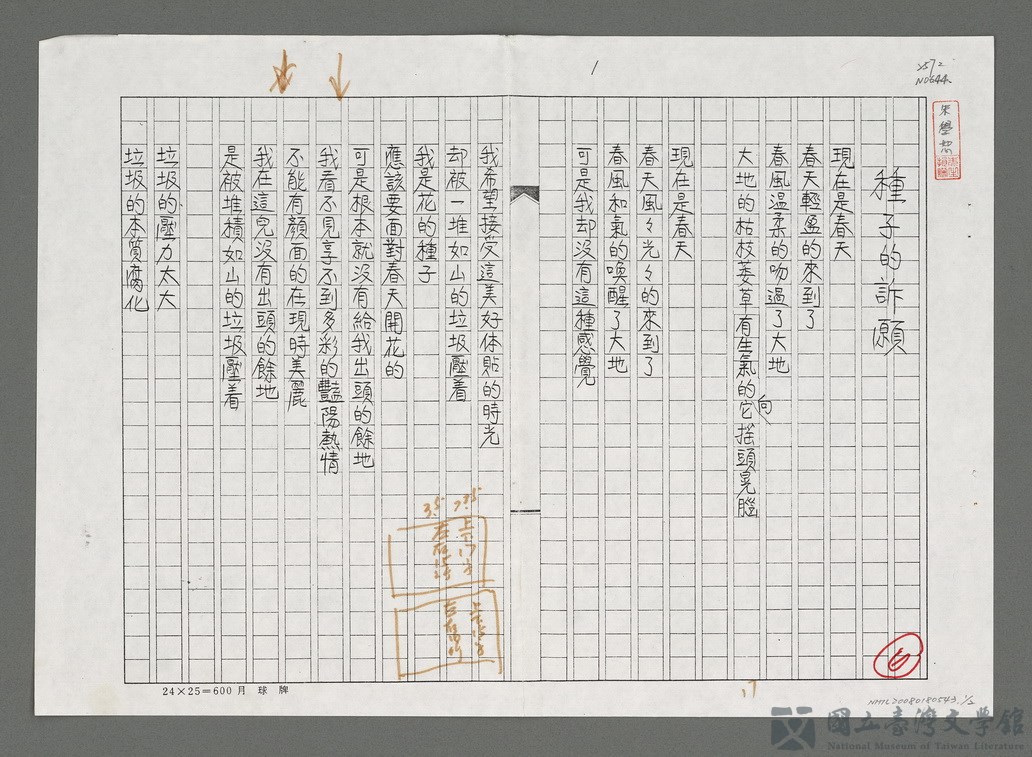 1
2572
ND644
朱學恕
種子的訴願
現在是春天
春天輕盈的來到了
春風溫柔的吻過了大地
大地的枯枝萎草有生氣的向它搖頭晃腦
現在是春天
春天風々光々的來到了
春風和氣的喚醒了大地
可是我却沒有這種感覺
我希望接受這美好体貼的時光
却被一堆如山的垃圾壓着
我是花的種子
應該要面對春天開花的
可是根本就沒有給我出頭的餘地
我看不見享不到多彩的豔陽熱情
不能有顏面的在現時美麗
我在這兒沒有出頭的餘地
是被堆積如山的垃圾壓着
垃圾的壓力太大
垃圾的本質腐化
上下17字
左右
上下
左右
6
17
24×25=600 月球牌
NMTL20080180543 1/2
國立臺灣文學館
National Museum of Taiwan Literature